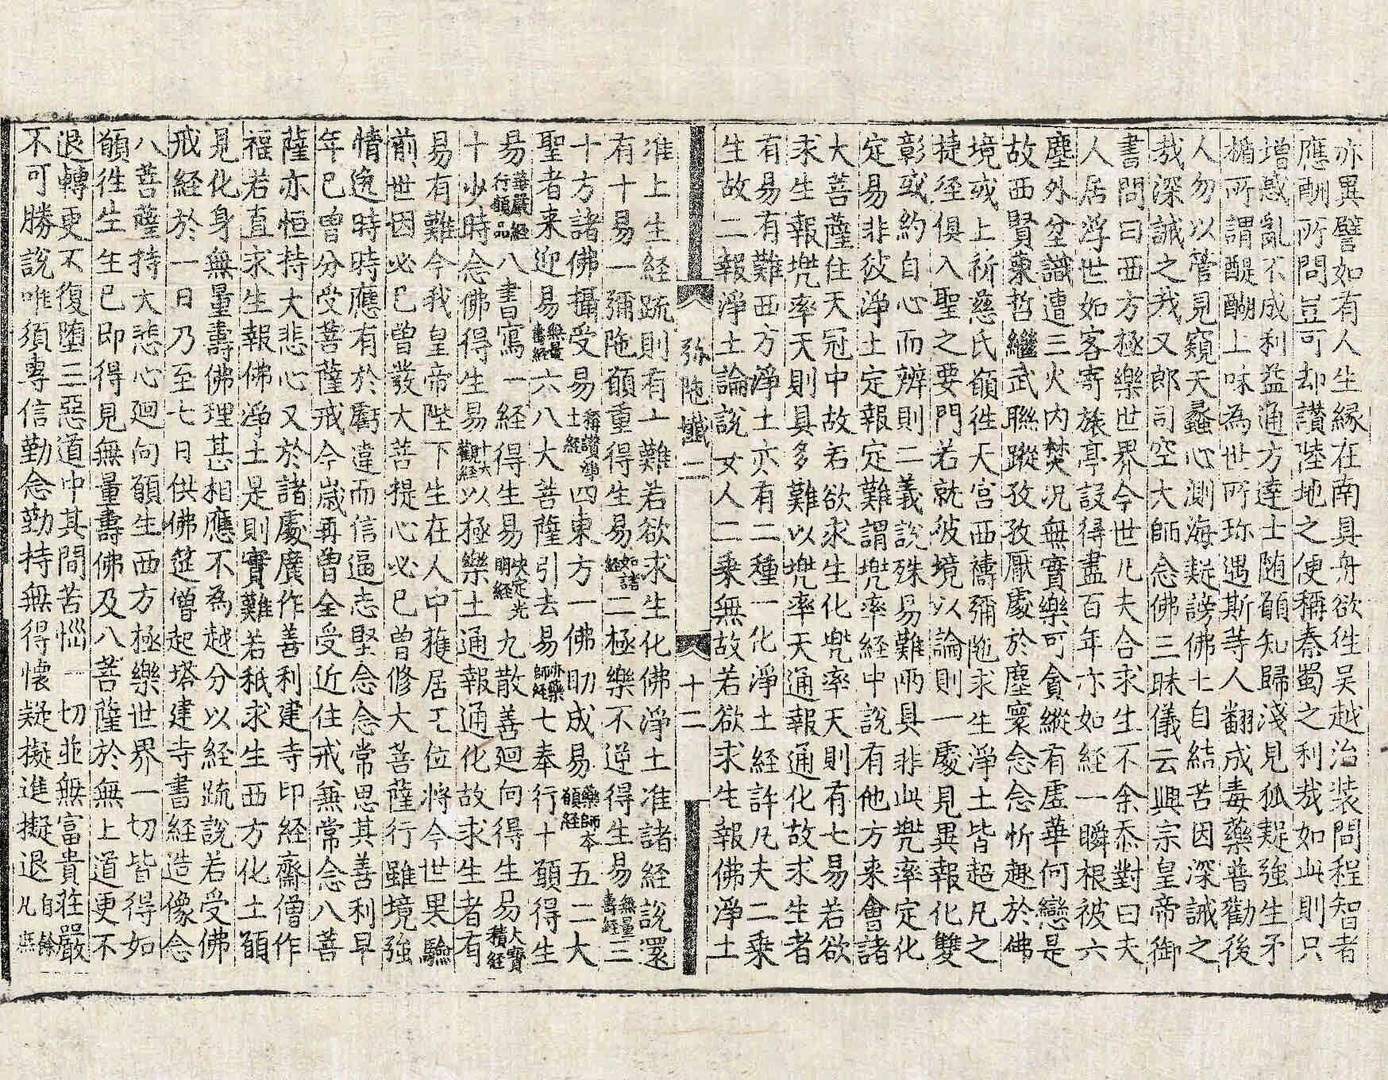 亦異譬如有人生縁在南具舟欲徃吴越治装問程智者
應酬所問豈可却讃陸地之便稱秦蜀之利㦲如此則只
增惑亂不成利益通方達士随願知歸淺見狐疑強生矛
楯所謂醍醐上味為世所珎遇斯等人翻成毒藥普勸後
人勿以管見窺天蠡心測海疑謗佛土自結苦因深誡之
㦲深誡之㦲又郎司空大師念佛三昧儀云興宗皇帝御
書問曰西方極樂世界今世凡夫合求生不余忝對曰夫
人居浮世如客寄旅亭設得盡百年亦如經一瞬根被六
塵外坌識遭三火内焚况無實樂可貪縱有虚華何戀是
故西賢東哲繼武聯蹤孜孜厭處於塵寰念念忻趣於佛
境或上祈慈氏願徃天宫西禱彌陁求生淨土皆超凡之
捷徑俱入聖之要門若就彼境以論則一處見異報化雙
彰或約自心而辨則二義說殊易難两具非此兠率定化
定易非彼淨土定報定難謂兠率經中說有他方来會諸
大菩薩住天冠中故若欲求生化兠率天則有七易若欲
求生報兠率天則具多難以兠率天通報通化故求生者
有易有難西方淨土亦有二種一化淨土經許凡夫二乗
生故二報淨土論說女人二乗無故若欲求生報佛淨土
弥陁懺二 十二
准上生經䟽則有十難若欲求生化佛淨土准諸經說還
有十易一彌陁願重得生易如諸經二極樂不逆得生易無量壽經三
十方諸佛攝受易稱讃淨土經四東方一佛助成易藥師本願經五二大
聖者来迎易無量壽經六八大菩薩引去易亦藥師經七奉行十願得生
易華嚴經行願品八書寫一經得生易决定光明經九散善廻向得生易大寳積經
十少時念佛得生易十六觀經以極樂土通報通化故求生者有
易有難今我皇帝陛下生在人中獲居王位將今世果驗
前世因必已曾發大菩提心必已曾修大菩薩行雖境強
情逸時時應有於虧違而信逼志堅念念常思其善利早
年已曾分受菩薩戒今歲再曾全受近住戒兼常念八菩
薩亦恒持大悲心又於諸處廣作善利建寺印經齋僧作
福若直求生報佛淨土是則實難若秖求生西方化土願
見化身無量壽佛理甚相應不為越分以經䟽說若受佛
戒經於一日乃至七日供佛筵僧起塔建寺書經造像念
八菩薩持大悲心廻向願生西方極樂世界一切皆得如
願徃生生已即得見無量壽佛及八菩薩於無上道更不
退轉更不復堕三惡道中其間苦惱一切並無富貴莊嚴
不可勝說唯須專信勤念勤持無得懐疑擬進擬退自餘凡無